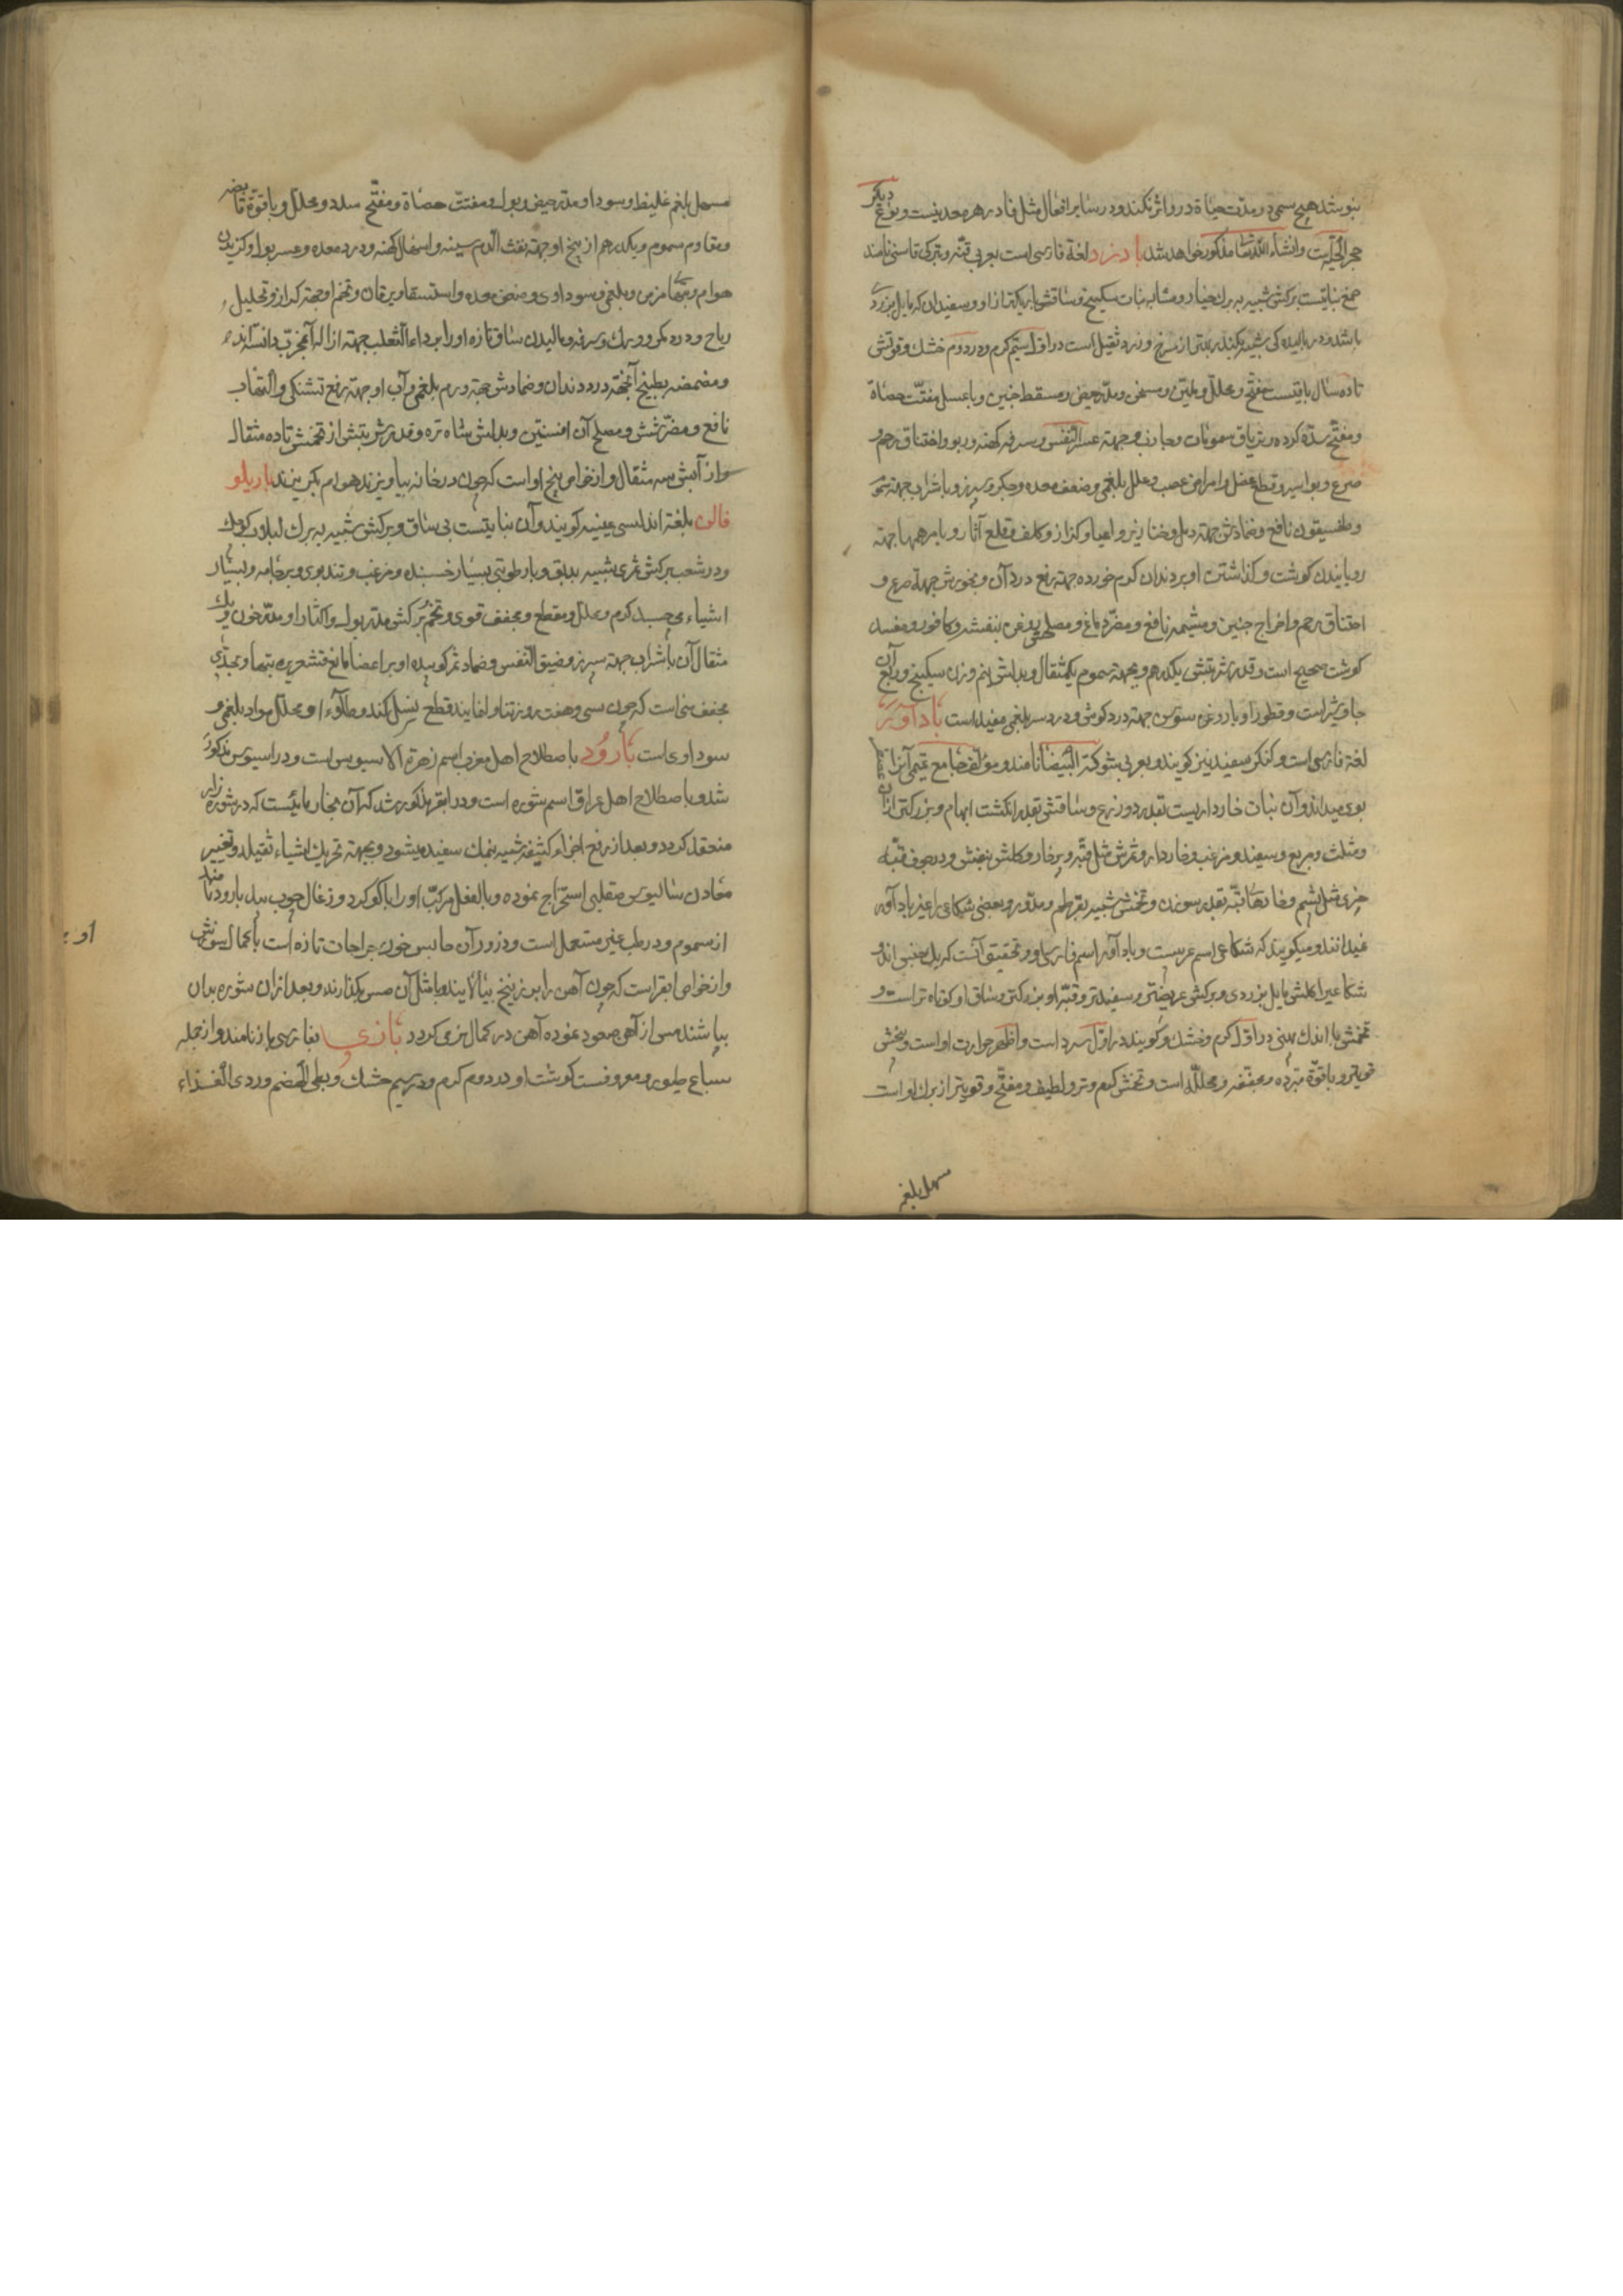 بنوشد هیچ سمی در مدت حیاة در او اثر نکند و در سایر افعال مثل فادزهر معدنیست و نوع دیگر
حجر الحیّة است وانشاء الله تعا مذکور خواهد شد بادزرد لغة فارسی است بعربی قنّه و بترکی قاسنی نامند
صمغ نباتیست برکش شبیه به برك خیار و مشابه نبات سکبینج و ساقش باریکتر از او و سفید آن که مایل بزردی
باشد و در بالیدکی شبیه بکندر بهتر از سرخ و زرد ثقیل است در اول سیّم کرم و در دوم خشك و قوتش
تا ده سال باقیست مفتّح و محلّل و ملیّن و مسخن و مدّر حیض و مسقط جنین و با عسل مفتّت حصاة
و مفتّح سدّه کرده و تریاق سمومات و جاذب و جهته عسر النّفس و سرفه کهنه و ربو و اختناق رحم و
صرع و بواسیر و قطع عضل و امراض عصب و علل بلغمی و ضعف معده و جکر و سپرز و با شراب جهته
و طفسیقون نافع و ضمادش جهته دمل و خنازیر و اعیا و کزاز و کلف و قلع آثار و با مرهمها جهته
رویانیدن کوشت و کذاشتن او بر دندان کرم خورده جهته رفع درد آن و بخورش جهتة صرع و
اختناق رحم و اخراج جنین و مشیمه نافع و مضرّ دماغ و مصلحش روغن بنفشه و کافور و مفسد
کوشت صحیح است و قدر شربتش یکدرهم و بجهته سموم یکمثقال و بدلش نیم وزن سکبینج و ربع آن
جاوشیر است و قطور او با روغن سوسن جهته درد کوش و درد سر بلغمی مفید است بادآورد
لغة فارسی است و کنکر سفید نیز کویند و بعربی شوکة البیضا نامند و مؤلف جامع قیمی آنرا
بوی میداند و آن نبات خارداریست بقدر دو ذرع و ساقش بقدر انکشت ابهام و بزرکتر از آن
و مثلث و مربع و سفید و مزغب و خاردار و ثمرش مثل قبّه و پرخار و کلش بنفش و در جوف قبّه
چیزی مثل پشم و خارهای قبّه بقدر سوزن و تخمش شبیه بقرطم و مدّور و بعضی شکاعی را غیر بادآورد
میدانند و میکویند که شکاعی اسم عربیست و بادآورد اسم فارسی او و تحقیق آنست که یك جنس اند و
شکاعی را کلش مایل بزردی و برکش عریضتر و سفیدتر و قبّه او بزرکتر و ساق او کوتاه تر است و
تخمش با اندك پهنی در اوّل کرم و خشك و کویند در اوّل سرد است و اظهر حرارت اوست و بیخش
قویتر و با قوّة مبرّده و مجفّفه و محلّله است و تخمش کرم و تر و لطیف و مفتّح و قویتر از برك او است
مسهل بلغم
مسهل بلغم غلیظ و سودا و مدّر حیض و بول و مفتت حصاة و مفتّح سدد و محلل و با قوّة قابضه
و مقاوم سموم و یکدرهم از بیخ او جهته نفث الدّم سینه و اسهال کهنه و درد معده و عسر بول و کزیدن
هوام و تبهای مزمن و بلغمی و سوداوی و ضعف معده و استسقا و یرقان و تخم او جهته کزاز و تحلیل
ریاح و درد کمر و ورك و سرفه و مالیدن ساق تازه او را بر داء الثعلب جهته ازاله آن مجرّب دانسته اند
و مضمضه بطبیخ آن جهته درد دندان و ضمادش جهته ورم بلغمی و آب او جهته رفع تشنکی و التهاب
نافع و مضرّ شش و مصلح آن افسنتین و بدلش شاه تره و قدر شربتش از تخمش تا ده مثقال
و از آبش سه مثقال و از خواص بیخ او است که چون در خانه بیاویزند هوام بکریزند باریلو
فالن بلغة اندلسی عینیه کویند و آن نباتیست بی ساق و برکش شبیه به برك لبلاب کوچك
و در شعب برکش ثمری شبیه بدبق و با رطوبتی بسیار چسبنده و مزغب و تندبوی و بر جامه و بسیار
اشیاء میچسبد کرم و محلل و مقطع و مجفف قوی و تخم برکش مدّر بول و اکثار او مدّر خون و یك
مثقال آن با شراب جهته سپرز و ضیق النّفس و ضماد ثمر کوبیده او بر اعضا مانع قشعریره تبها و بحدّی
مجفف منی است که چون سی و هفت روز تناول نمایند قطع نسل کند و طلاء او محلل مواد بلغمی و
سوداوی است بارود باصطلاح اهل مغرب اسم زهرة الاسیوس است و در اسیوس مذکور
شد و باصطلاح اهل عراق اسم شوره است و در ابقر مذکور شد که آن بخار مائیست که در شوره زار
منعقد کردد و بعد از رفع اجزاء کثیفه شبیه بنمك سفید میشود و بجهته تحریك اشیاء ثقیله و تغییر
معادن سالیوس صقلبی استخراج نموده و بالفعل مرکّب او را با کوکرد و زغال چوب بید بارود نامند
از سموم و در طب غیر مستعمل است و ذرور آن حابس خون جراحات تازه است
و از خواص ابقر است که چون آهن را بزرنیخ بیالایند و با مثل آن مس بکذارند و بعد از آن شوره بدان
بپاشند مس از آهن صعود نموده آهن در کمال نرمی کردد بازی بفارسی باز نامند و از جمله
سباع طیور و معروفست کوشت او در دوم کرم و در سیم خشك و بطی الهضم و ردی الغذاء